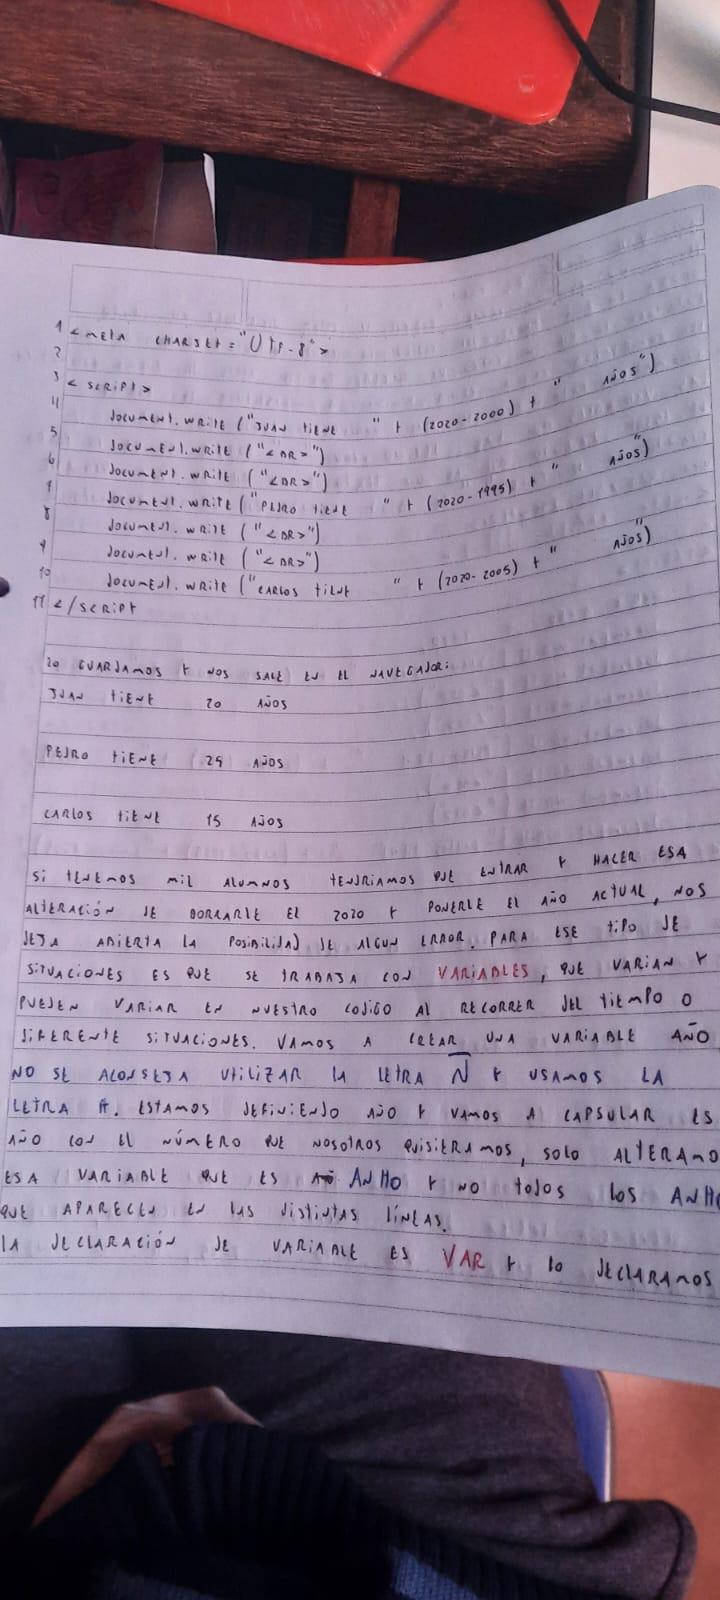 1 <META CHARSET="UTF-8">
2
3 <SCRIPT>
4 DOCUMENT.WRITE ("JUAN TIENE " + (2020-2000) + " AÑOS")
5 DOCUMENT.WRITE ("<BR>")
6 DOCUMENT.WRITE ("<BR>")
7 DOCUMENT.WRITE ("PEDRO TIENE " + (2020-1995) + " AÑOS")
8 DOCUMENT.WRITE ("<BR>")
9 DOCUMENT.WRITE ("<BR>")
10 DOCUMENT.WRITE ("CARLOS TIENE " + (2020-2005) + " AÑOS")
11 </SCRIPT
LO GUARDAMOS Y NOS SALE EN EL NAVEGADOR:
JUAN TIENE 20 AÑOS
PEDRO TIENE 25 AÑOS
CARLOS TIENE 15 AÑOS
SI TENEMOS MIL ALUMNOS TENDRIAMOS QUE ENTRAR Y HACER ESA
ALTERACIÓN DE BORRARLE EL 2020 Y PONERLE EL AÑO ACTUAL, NOS
DEJA ABIERTA LA POSIBILIDAD DE ALGUN ERROR. PARA ESE TIPO DE
SITUACIONES ES QUE SE TRABAJA CON VARIABLES, QUE VARIAN Y
PUEDEN VARIAR EN NUESTRO CODIGO AL RECORRER DEL TIEMPO O
DIFERENTE SITUACIONES. VAMOS A CREAR UNA VARIABLE AÑO
NO SE ACONSEJA UTILIZAR LA LETRA Ñ Y USAMOS LA
LETRA H. ESTAMOS DEFINIENDO AÑO Y VAMOS A CAPSULAR ES
AÑO CON EL NÚMERO QUE NOSOTROS QUISIERAMOS, SOLO ALTERAMO
ESA VARIABLE QUE ES ANHO Y NO TODOS LOS ANHO
QUE APARECEN EN LAS DISTINTAS LÍNEAS.
LA DECLARACIÓN DE VARIABLE ES VAR Y LO DECLARAMOS